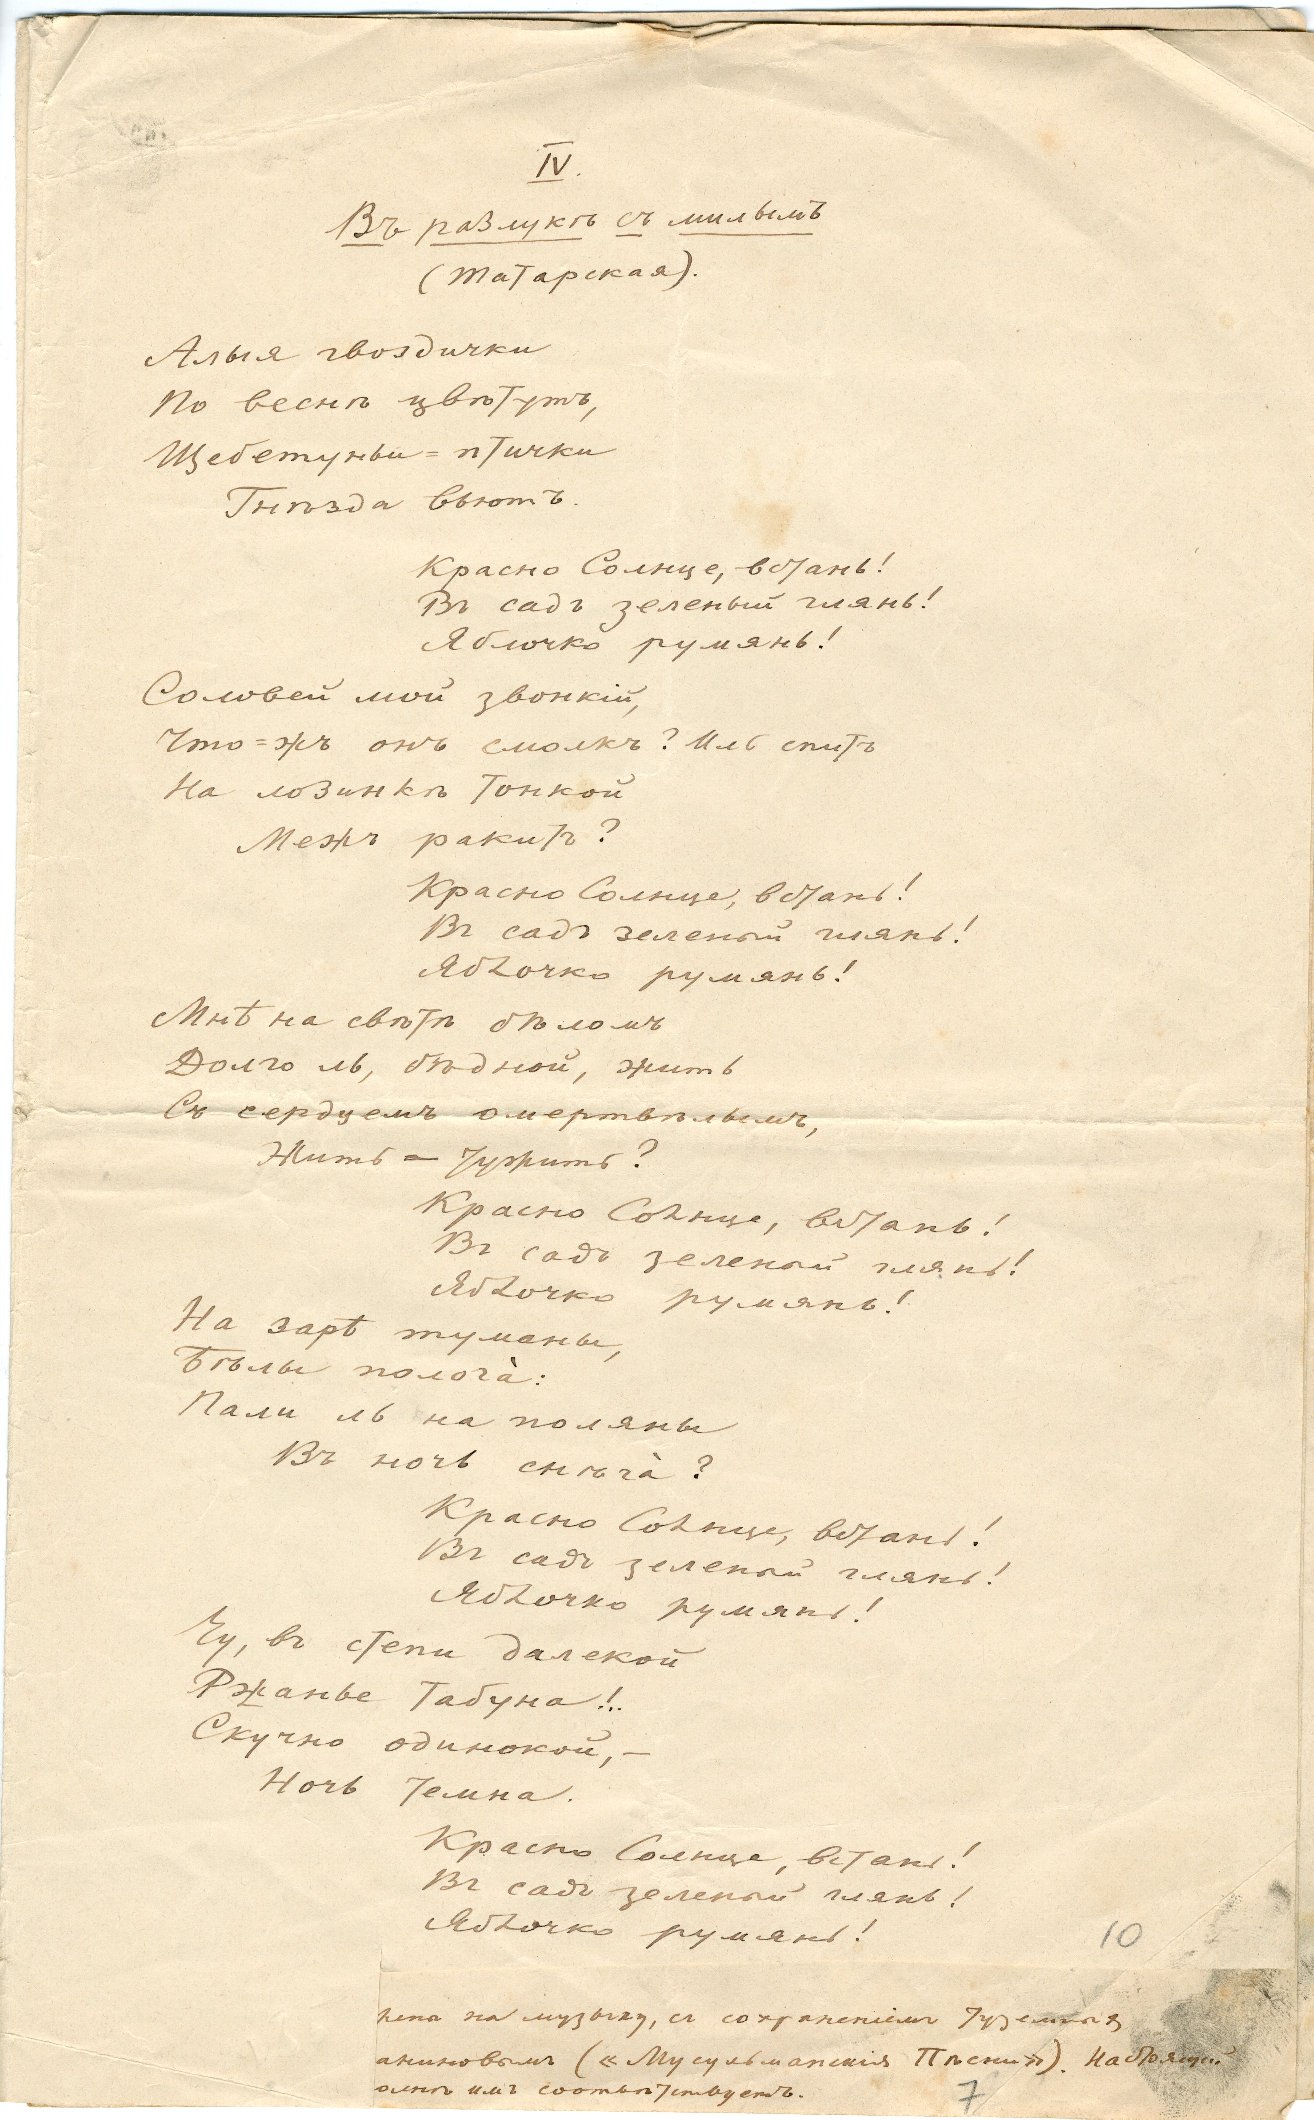 IV.
Въ разлукѣ съ милымъ
(Татарская).
Алыя гвоздички
По веснѣ цвѣтутъ,
Щебетуньи=птички
Гнѣзда вьютъ.
Красно Солнце, встань!
Въ садъ зеленый глянь!
Яблочко румянь!
Соловей мой звонкій,
Что=жъ онъ смолкъ? Иль спитъ
На лозинкѣ тонкой
Межъ ракитъ?
Красно Солнце, встань!
Въ садъ зеленый глянь!
Яблочко румянь!
Мнѣ на свѣтѣ бѣломъ
Долго ль, бѣдной, жить
Съ сердцемъ омертвѣлымъ,
Жить = тужить?
Красно Солнце, встань!
Въ садъ зеленый глянь!
Яблочко румянь!
На зарѣ туманы,
Бѣлы полога̀:
Пали ль на поляны
Въ ночь снѣга̀?
Красно Солнце, встань!
Въ садъ зеленый глянь!
Яблочко румянь!
Чу, въ степи далекой
Ржанье табуна!..
Скучно одинокой,—
Ночь темна.
Красно Солнце, встань!
Въ садъ зеленый глянь!
Яблочко румянь!
10
на музыку, съ сохраненіемъ
аниновымъ («Мусульманскія Пѣсни»).
имъ соотвѣтствуетъ.
7